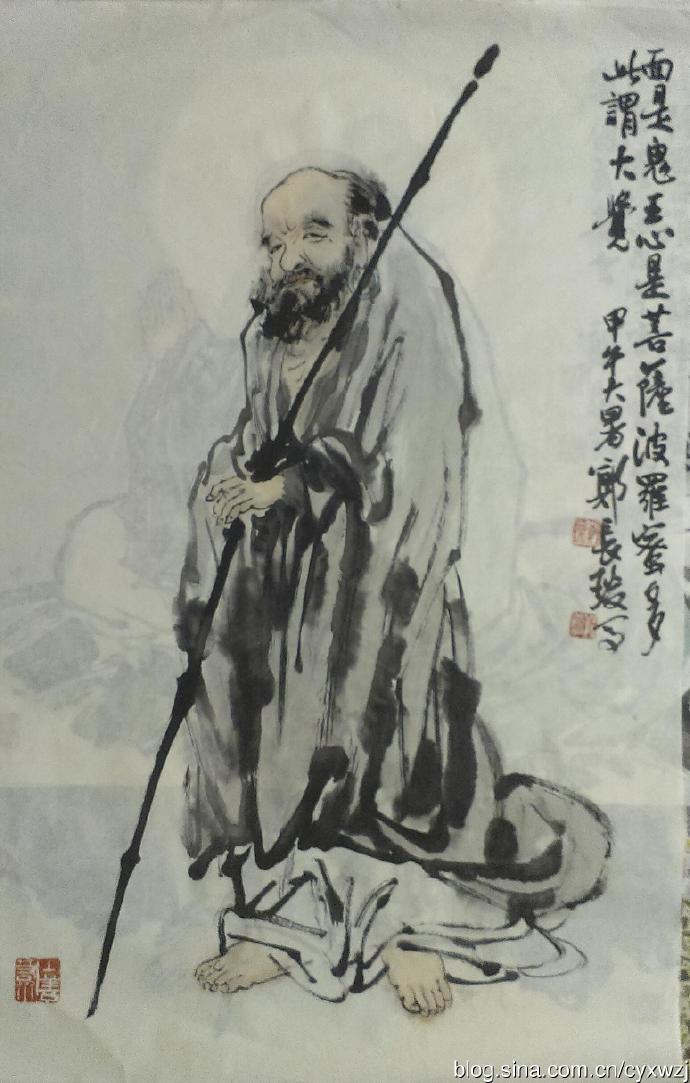 面是鬼王心是菩薩波羅蜜多
此謂大覺
甲午大暑鄭長
blog.sina.com.cn/cyxwzj